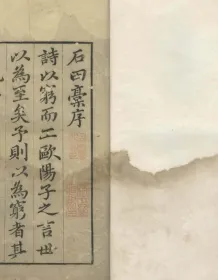 石臼藁序
詩以窮而工歐陽子之言世
以為至矣予則以為窮者其